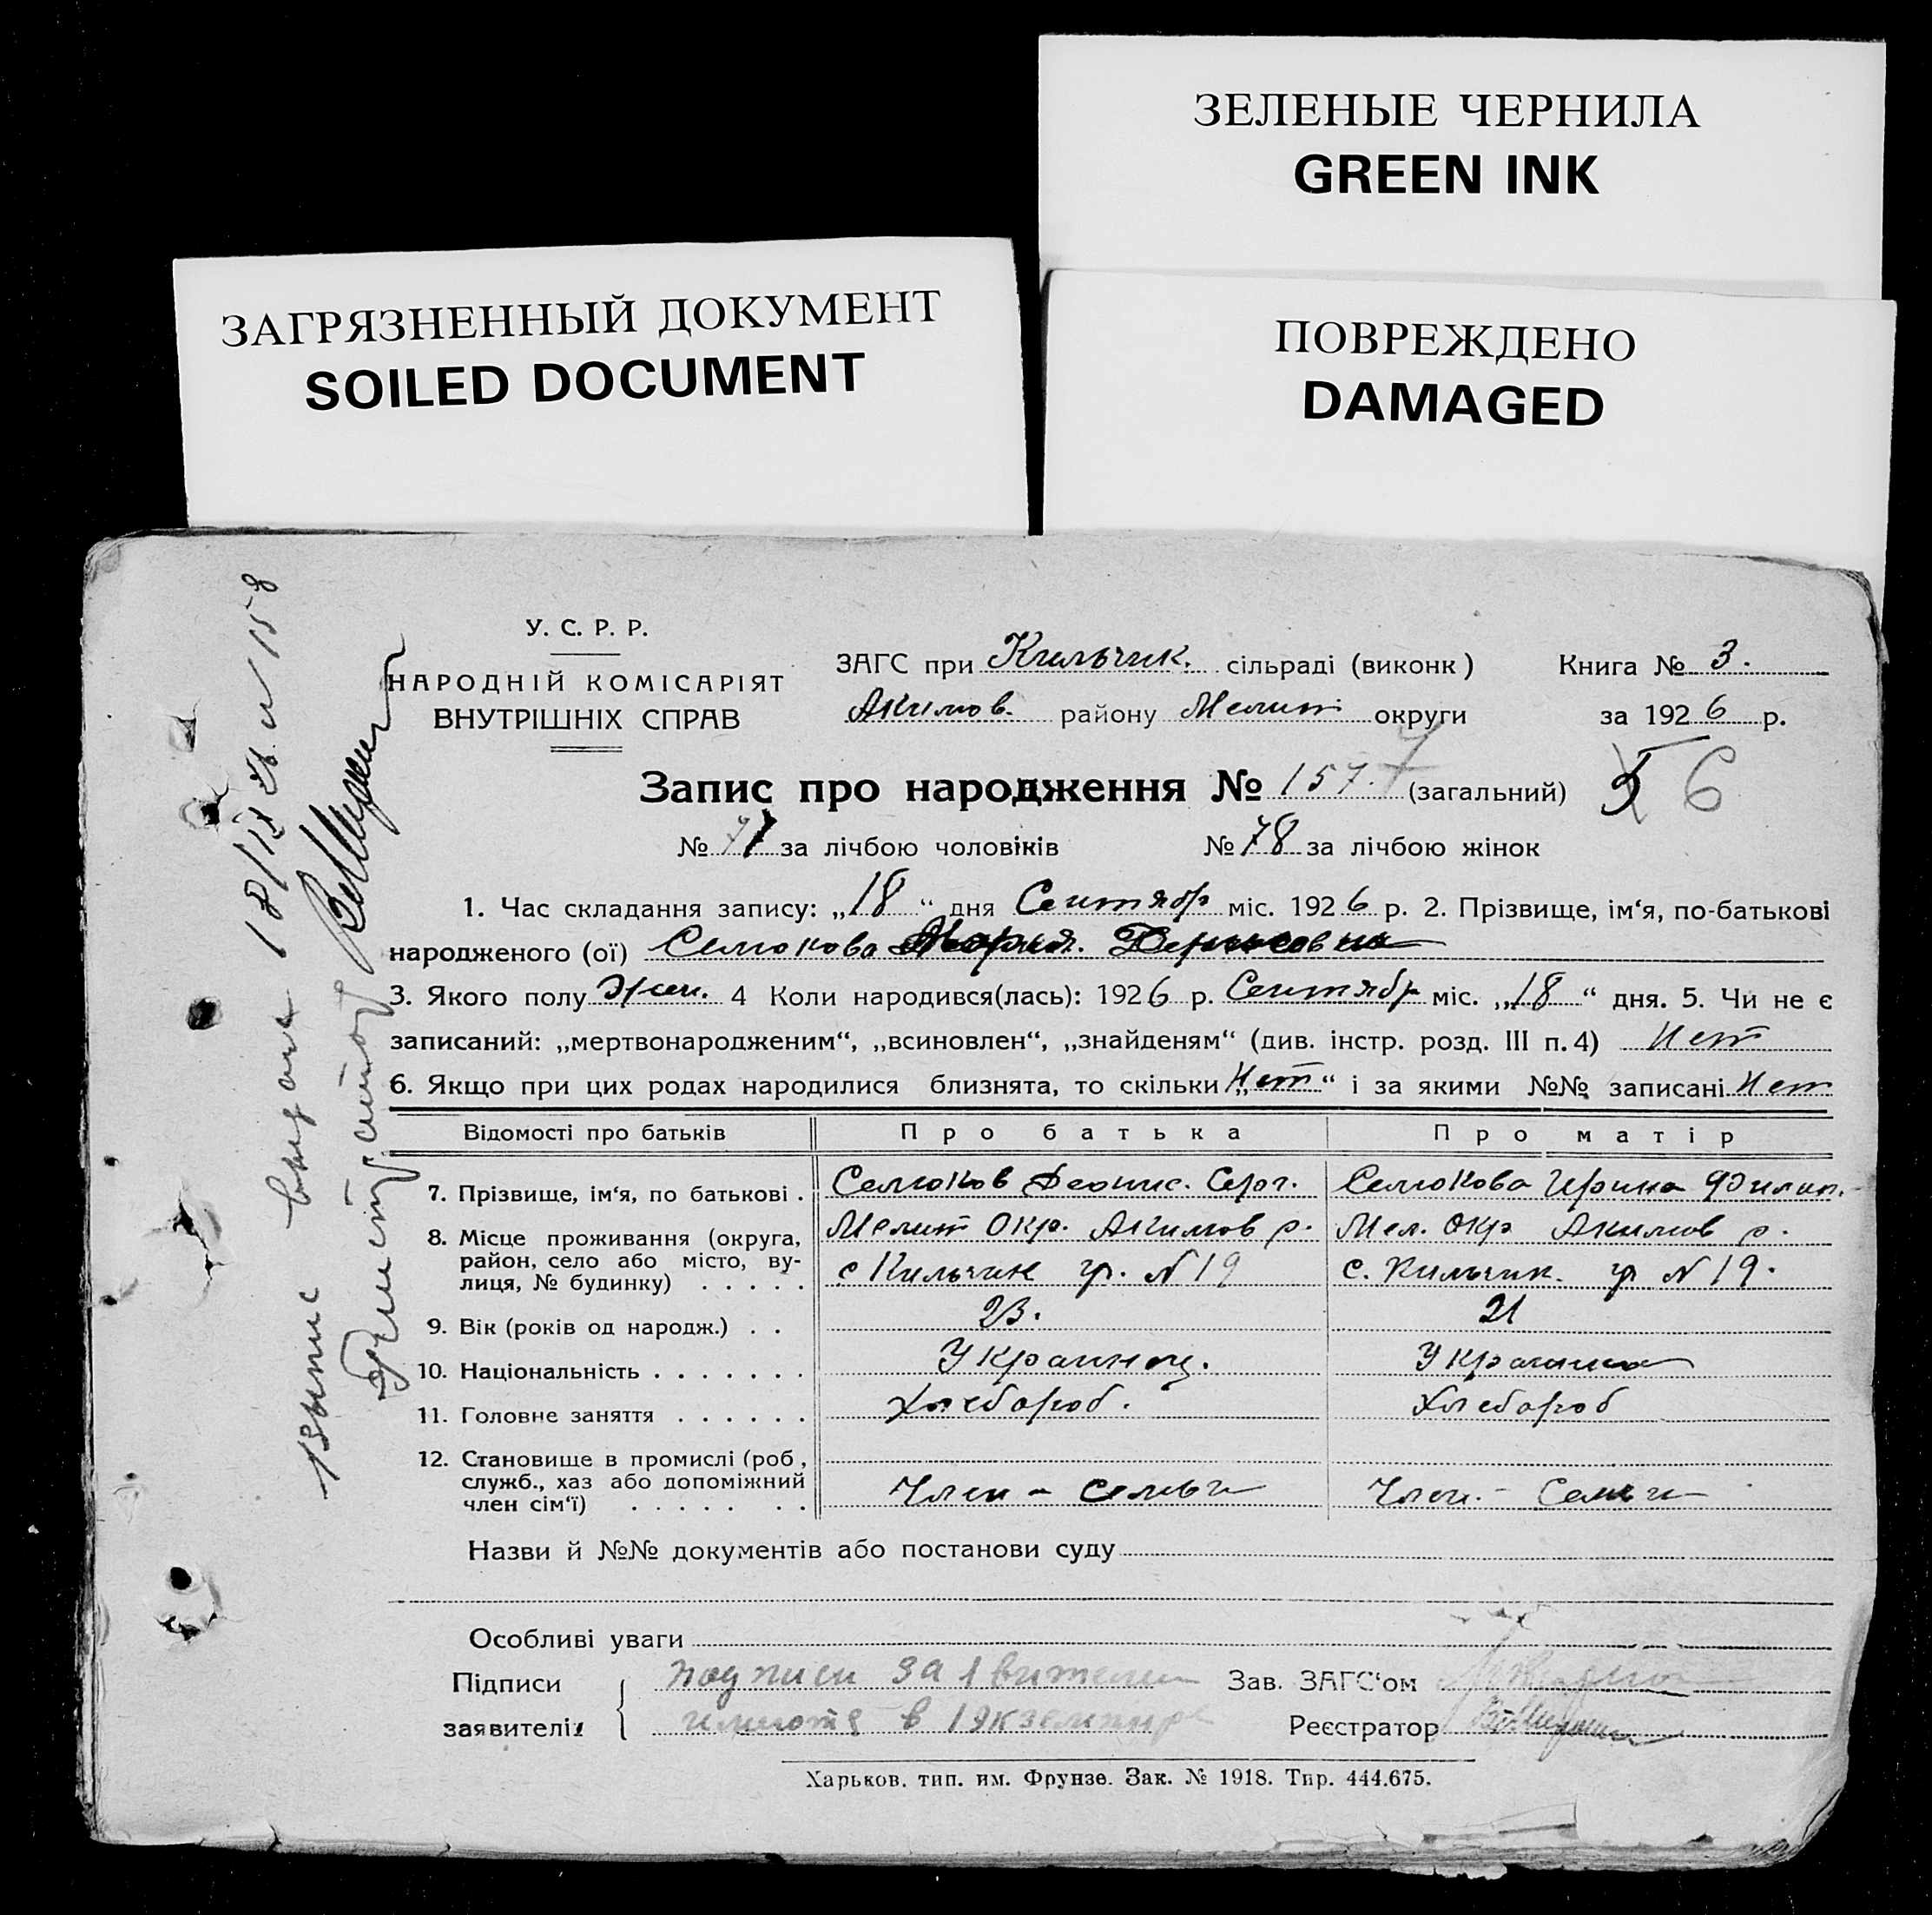 ЗЕЛЕНЫЕ ЧЕРНИЛА
GREEN INK
ЗАГРЯЗНЕННЫЙ ДОКУМЕНТ
SOILED DOCUMENT
ПОВРЕЖДЕНО
DAMAGED
У. С. Р. Р.
НАРОДНІЙ КОМІСАРІЯТ
ВНУТРІШНІХ СПРАВ
ЗАГС при Кильчик. сільраді (виконк)
Акимов. району Мелит округи
Книга № 3.
за 1926 р.
Запис про народження № 157. (загальний) 6
№ 77 за лічбою чоловіків № 78 за лічбою жінок
1. Час складання запису: „18“ дня Сентябр міс. 1926 р. 2. Прізвище, ім'я, по-батькові
народженого (ої) Селюкова Мария.
3. Якого полу Жен. 4 Коли народився(лась): 1926 р. Сентябр міс. „18“ дня. 5. Чи не є
записаний: „мертвонародженим“, „всиновлен“, „знайденям“ (див. інстр. розд. III п. 4) Нет
6. Якщо при цих родах народилися близнята, то скільки „Нет“ і за якими №№ записані Нет
Відомості про батьків Про батька Про матір
7. Прізвище, ім'я, по батькові . Селюков Деонис. Серг. Селюкова Ирина Филип.
8. Місце проживання (округа, район, село або місто, вулиця, № будинку) . . . . .
Мелит Окр. Акимов р. Мел. Окр Акимов р.
с Кильчик гр. N 19 с. Кильчик. гр N 19.
9. Вік (років од народж.) . . 23. 21
10. Національність . . . . . . . Украинец. Украинка
11. Головне заняття . . . . . . Хлебороб. Хлебороб
12. Становище в промислі (роб, служб., хаз або допоміжний член сім'ї) . . . . . . .
Член - семьи Член. - Семьи
Назви й №№ документів або постанови суду
Особливі уваги
Підписи заявителів
подписи заявители
имиются в 1 экземпляре
Зав. ЗАГС'ом
Реєстратор
Харьков. тип. им. Фрунзе. Зак. № 1918. Тир. 444.675.
Выпис выдана 18/IX 26. N 158